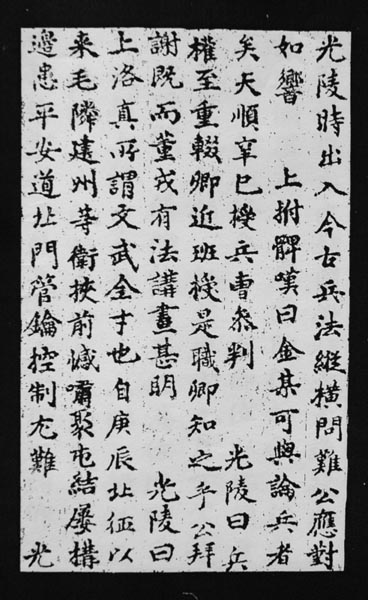 光陵時出入今古兵法縱橫問難公應對
如響 上拊髀嘆曰金某可與論兵者
矣天順辛巳授兵曹叅判 光陵曰兵
權至重輟卿近班授是職卿知之乎公拜
謝既而董戎有法講畫甚明 光陵曰
上洛真所謂文武全才也自庚辰北征以
来毛隣建州等衛挾前憾嘯聚屯結屢搆
邊患平安道北門管鑰控制尤難 光